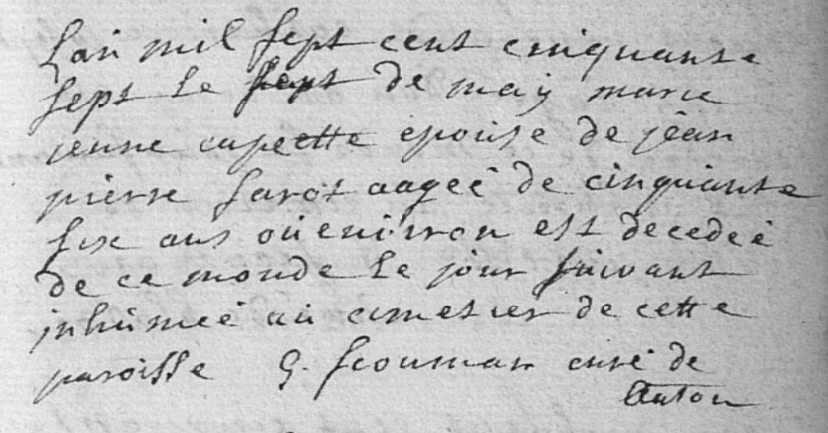 L'an mil sept cent cinquante
sept le sept de may marie
jenne capette epouse de jean
pierre sarot aageé de cinquante
six ans oü environ est decedeé
de ce monde le jour suivant
inhumeé au cimetier de cette
paroisse G. curé de